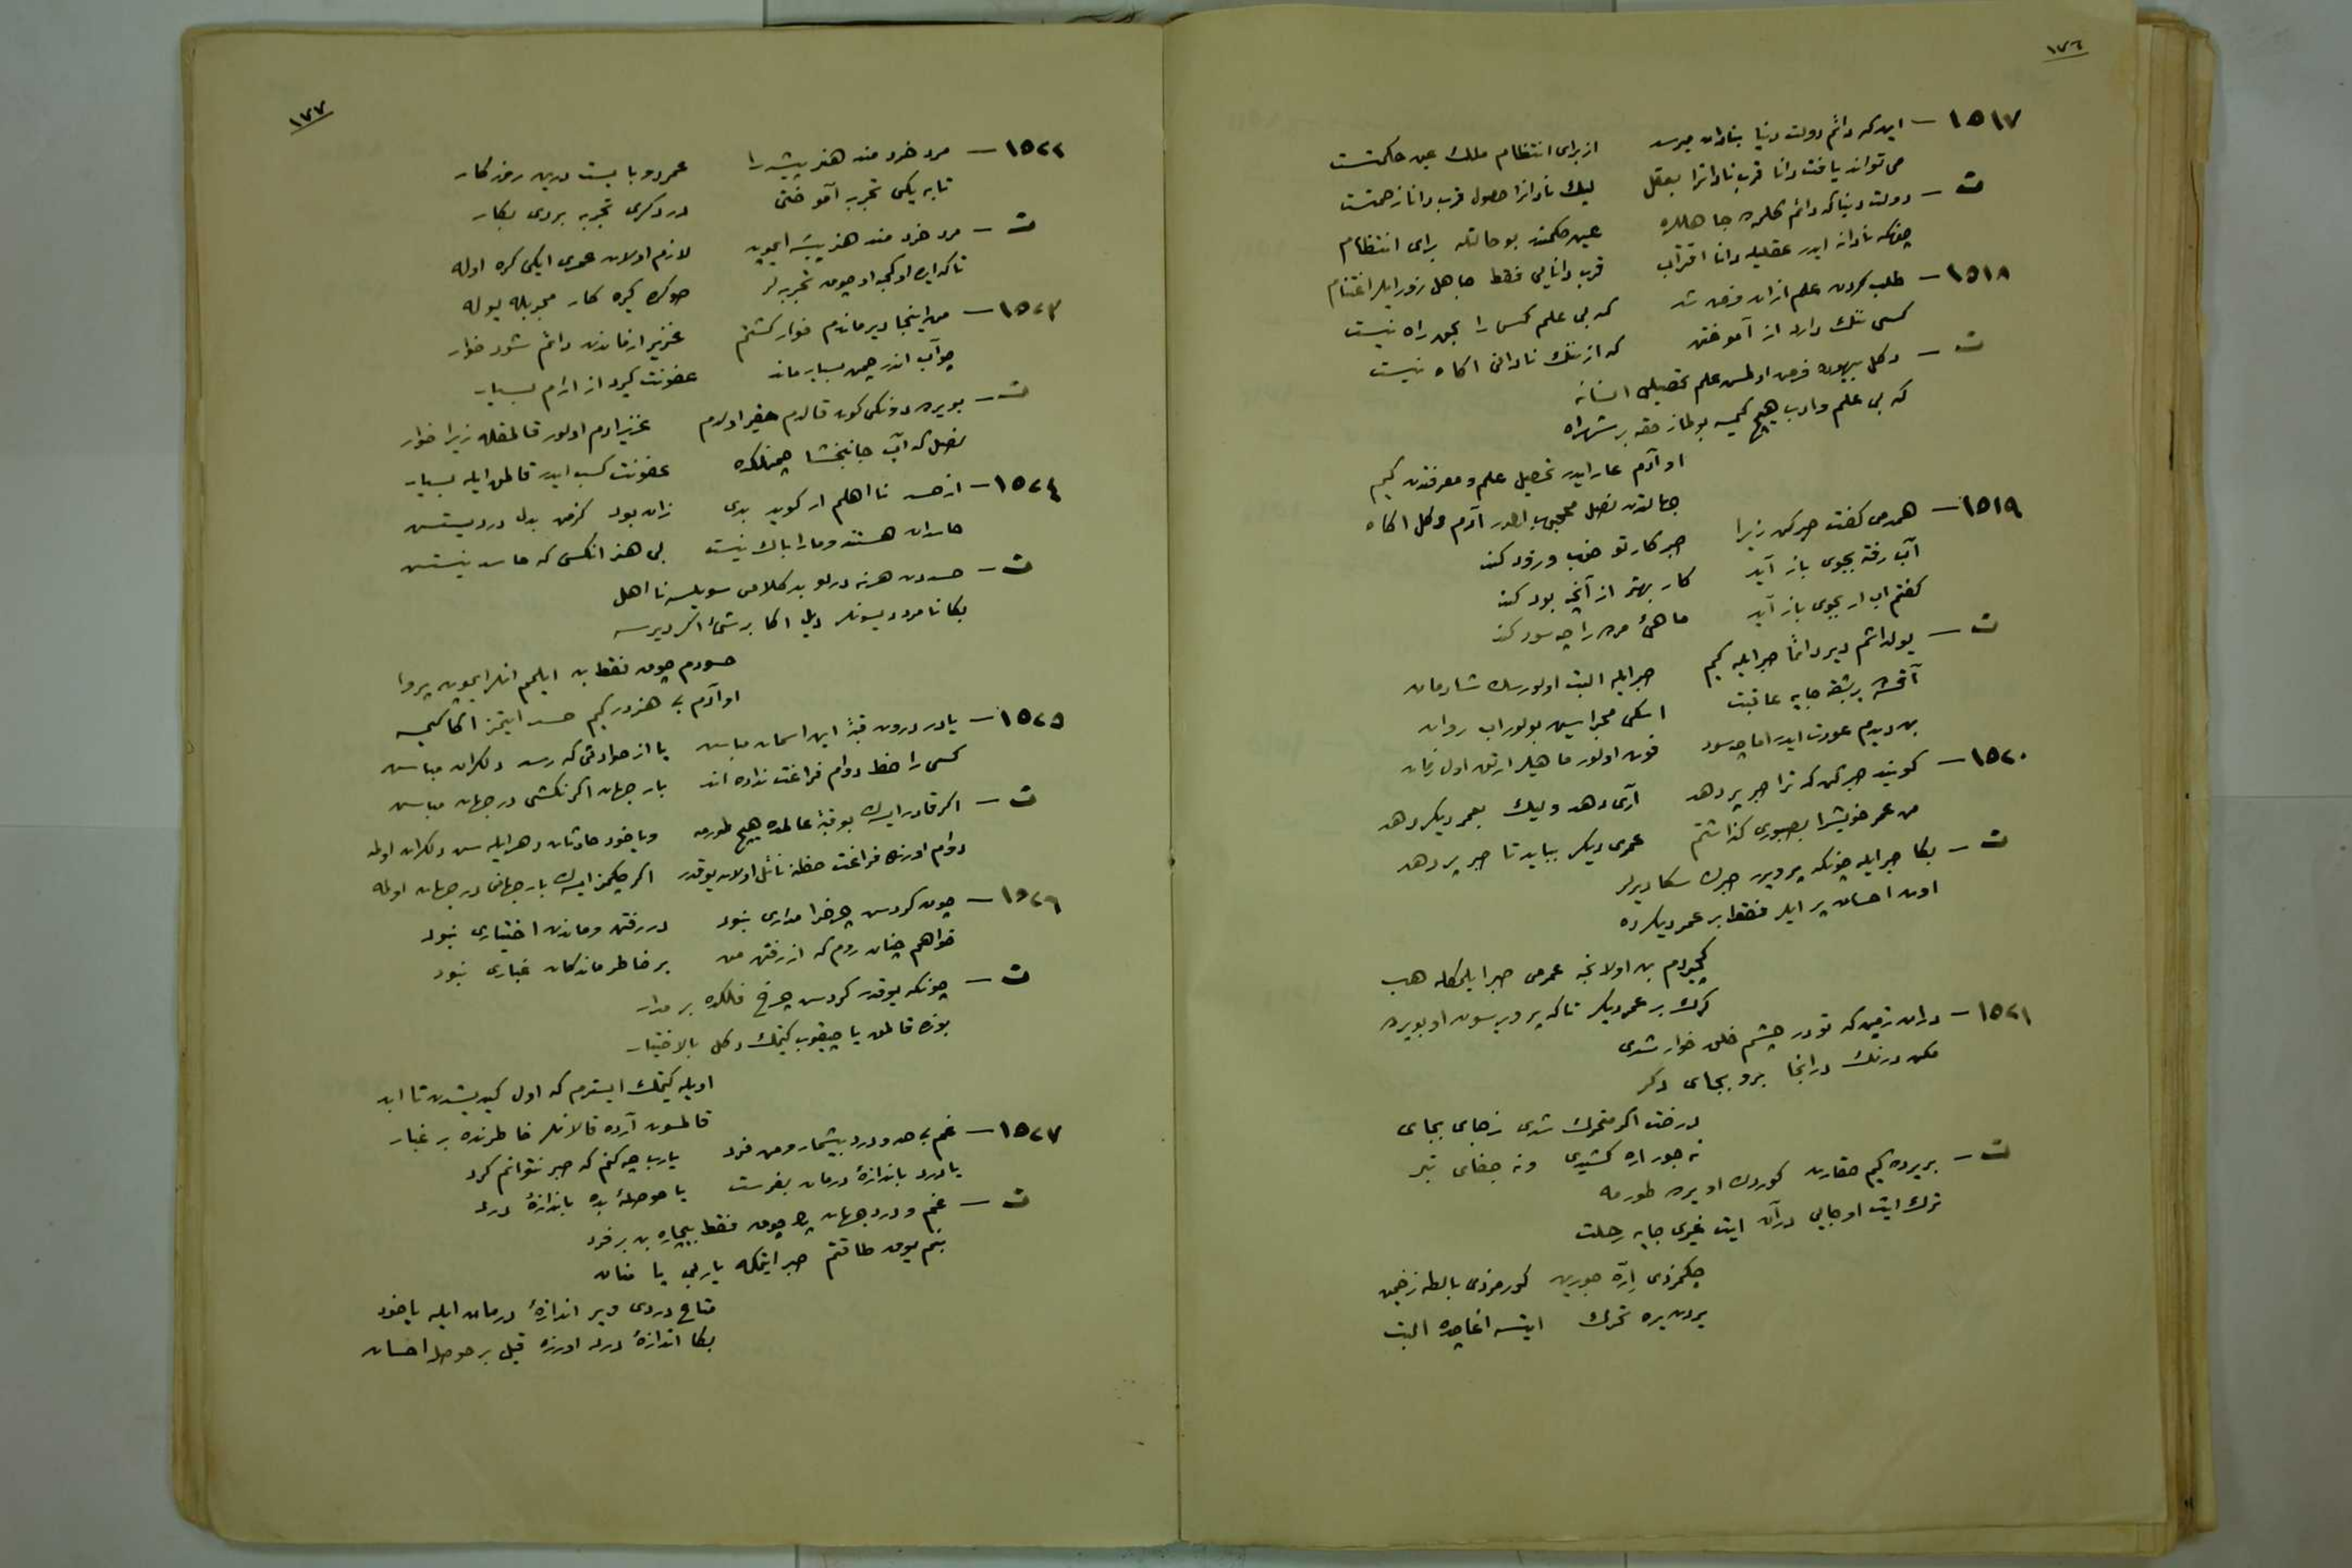 ١٧٦
١٥١٧ — اینکه دائم دولت دنیا بنادان میرسد از برای انتظام ملك عین حکمتست
می تواند یافت دانا قرب نادانرا بعقل لیك نادانرا حصول قرب دانا زحمتست
ت — دولت دنیا که دائم کلمه جاهللره عین حکمتدر بو حالتله برای انتظام
چونکه نادانه ایدر عقلیله دانا اقتراب قرب دانایی فقط جاهل زور ایلر اغتنام
١٥١٨ — طلب کردن علم ازان فرض شد که بی علم کس را بحق راه نیست
کسی ننك دارد از آموختن که از ننك نادانی اکاه نیست
ت — دکل بیهوده فرض اولمس علم تحصیلی انسانه
که بی علم و ادب هیچ کیمسه بولماز حقه بر شهراه
او آدم عار ایدر تحصیل علم و معرفتدن کیم
جهالتدن نصل محجوب اولور آدم دکل اکاه
١٥١٩ — همدمی کفت صبر کن زیرا صبر کار تو خوب و زود کند
آب رفته بجوی باز آید کار بهتر از آنچه بود کند
کفتم آب ار بجوی باز آید ماهئ مرده را چه سود کند
ت — یولداشم دیر دائما صبر ایله کیم صبر ایله البت اولورسك شادمان
آقمش بشقه جایه عاقبت اسکی مجراسین بولور آب روان
بن دیدم عودت ایدر اما چه سود فوت اولور ماهیلر ارتق اول زمان
١٥٢٠ — کویند صبر کن که ترا صبر بر دهد آری دهد ولیك بعمر دیکر دهد
من عمر خویشرا بصبوری کذاشتم عمری دیکر بباید تا صبر بر دهد
ت — بکا صبر ایله چونکه بر ویرر صبرك سکا دیرلر
اوت احسان بر ایلر فقط بر عمر دیکرده
کچیردم بن اولانجه عمرمی صبر ایلمکله هب
کرك بر عمر دیکر تا که بر ویرسون او بویرده
١٥٢١ — دران زمین که تو در چشم خلق خوار شدی
مکن درنك درانجا برو بجای دکر
درخت اکر متحرك شدی ز جای بجای
نه جور اره کشیدی ونه جفای تبر
ت — بر یرده کیم حقارت کوردك او یرده طورمه
ترك ایت او جایی درآن ایت غیری جایه رحلت
چکمزدی ارّه جورین کورمزدی بالطه زخمین
یردن یره تحرك ایتسه اغاجده البت
١٧٧
١٥٢٢ — مرد خرد مند هنر پیشه را عمر دو بایست درین روزکار
تا به یکی تجربه آموختن در دکری تجربه بردی بکار
ت — مرد خرد مند هنر پیشه ایچون لازم اولان عمری ایکی کره اوله
تاکه ایده اولکیده اوچون تجربه لر صوکره کیره کار مجربله یوله
١٥٢٣ — من اینجا دیر ماندم خوار کشتم عزیز از ماندن دائم شود خوار
چو آب اندر چمن بسیار ماند عفونت کیرد از آرام بسیار
ت — بویرده نیکی کون قالدم حقیر اولدم عزیز ادم اولور قالمقله زیرا خوار
نصل که آب جانبخشا چمنلکده عفونت کسب ایدر قالمق ایله بسیار
١٥٢٤ — از حسد نا اهلم ار کوید بدی زان بود کز من بدل دردیستس
حاسدان هستند ومارا باك نیست بی هنر انکس که حاسد نیستس
ت — حسددن هر نه درلو بد کلامی سویلسه نا اهل
بکا نامرد دیسونلر دیل اکا بر شئ اکر دیرسه
حسودم چوق فقط بن ایلمم انلر ایچون پروا
او آدم بی هنردر کیم حسد ایتمز اکا کیمسه
١٥٢٥ — یا در درون قبۀ این اسمان مباش یا از حوادثی که رسد دلکران مباش
کسی را خط دوام فراغت نداده اند بار جهان اکر نکشی در جهان مباش
ت — اکر قادر ایسك بو قبۀ عالمده هیچ طورمه ویاخود حادثات دهر ایله سن دلکران اولمه
دوام اوزره فراغت حظنه نائل اولان یوقدر اکر چکمز ایسك بار جهانی در جهان اولمه
١٥٢٦ — چون کردش چرخرا مداری نبود در رفتن و ماندن اختیاری نبود
خواهم چنان روم که از رفتن من بر خاطر ماندکان غباری نبود
ت — چونکه یوقدر کردش چرخ فلکده بر مدار
بوزه قالمق یا چیقوب کیتمك دکل بالاختیار
اویله کیتمك ایسترم که اول کیدیشدن تا ابد
قالمسون آرده قالانلر خاطرنده بر غبار
١٥٢٧ — غم بی حد و درد بیشمار ومن فرد یارب چه کنم که صبر نتوانم کرد
یا درد باندازۀ درمان بفرست یا حوصلۀ بده باندازۀ درد
ت — غم و درد جهان پك چوق فقط بیچاره بن بر فرد
بنم یوق طاقتم صبر ایتمکه یاربی یا منان
متاع دردی ویر اندازۀ درمان ایله یاخود
بکا اندازۀ درد اوزره قیل بر حوصله احسان